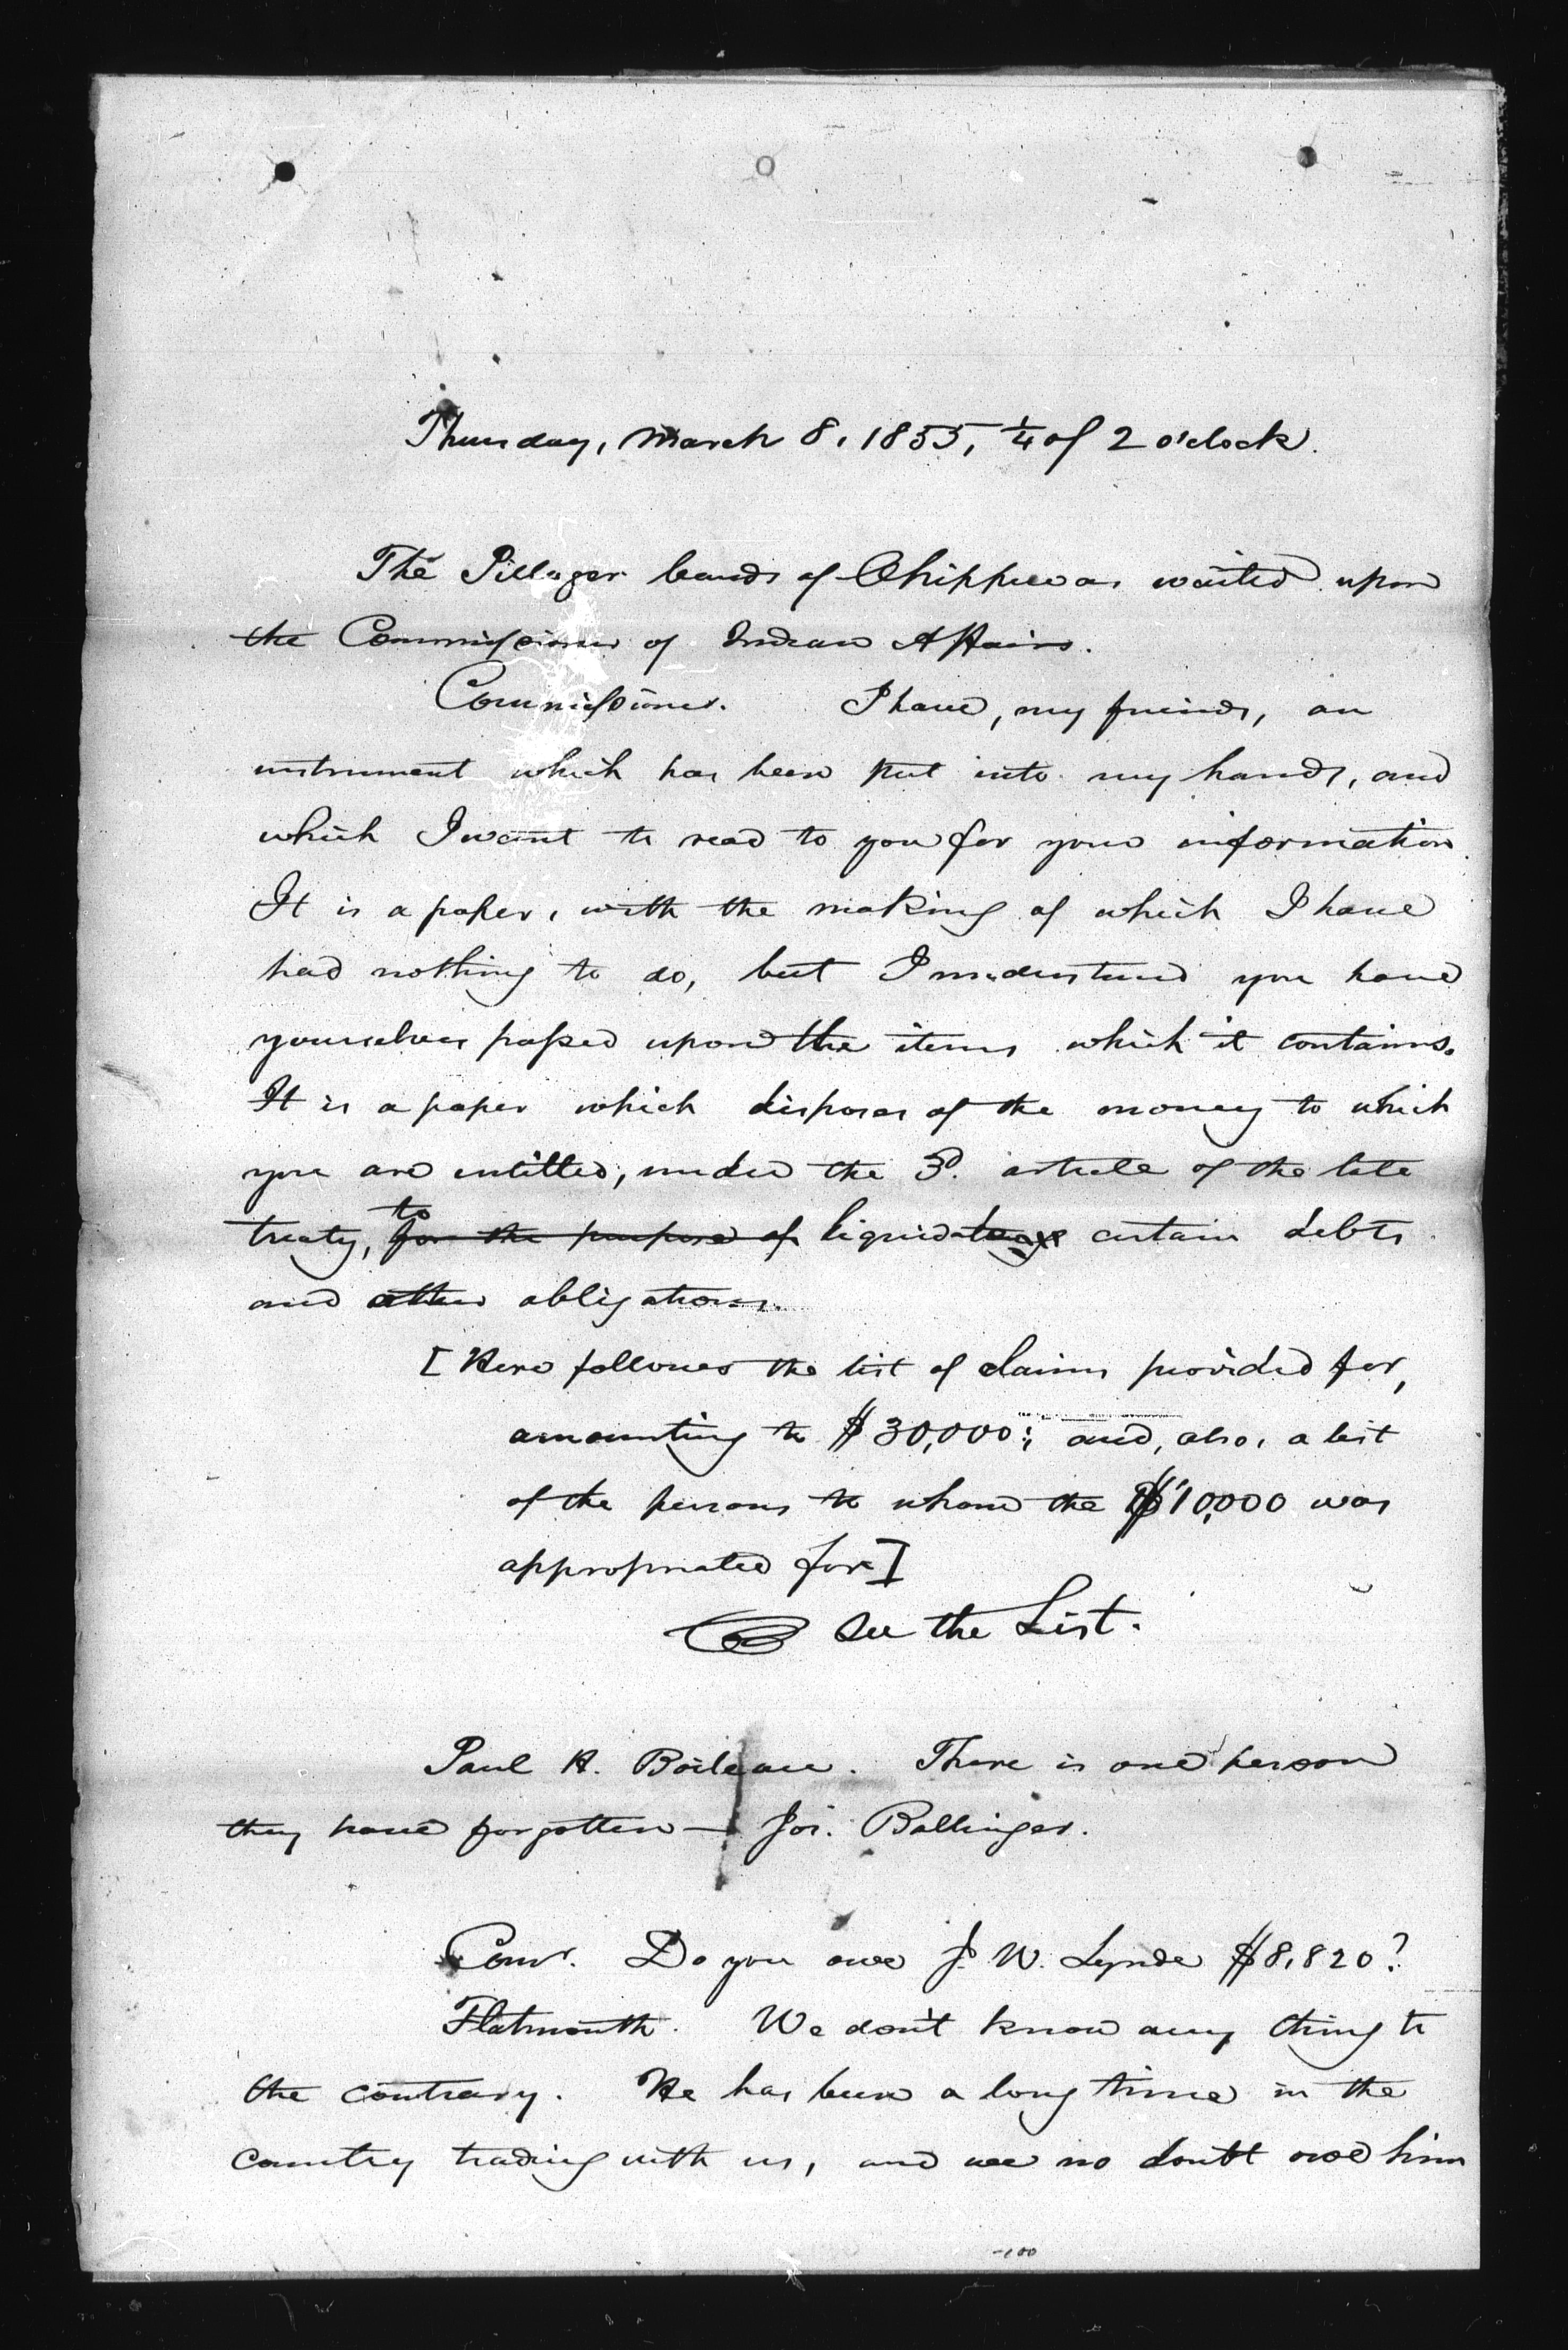 Thursday, March 8, 1855, ¼ of 2 o'clock.
The Pillager bands of Chippewas waited upon
the Commissioner of Indian Affairs.
Commissioner. I have, my friends, an
instrument which has been put into my hands, and
which I want to read to you for your information.
It is a paper, with the making of which I have
had nothing to do, but I understand you have
yourselves passed upon the items which it contains.
It is a paper which disposes of the money to which
you are entitled, under the 3d. article of the late
to
treaty, for the purpose of liquidate certain debts
and other obligations.
[Here follows the list of claims provided for,
amounting to $30,000; and, also, a list
of the persons to whom the $10,000 was
appropriated for]
See the List.
Paul H. Beaulieu. There is one person
they have forgotten — Jos. Ballinger.
Comr. Do you owe J. W. Lynde $8,820?
Flatmouth. We don't know any thing to
the contrary. He has been a long time in the
country trading with us, and we no doubt owe him
-100